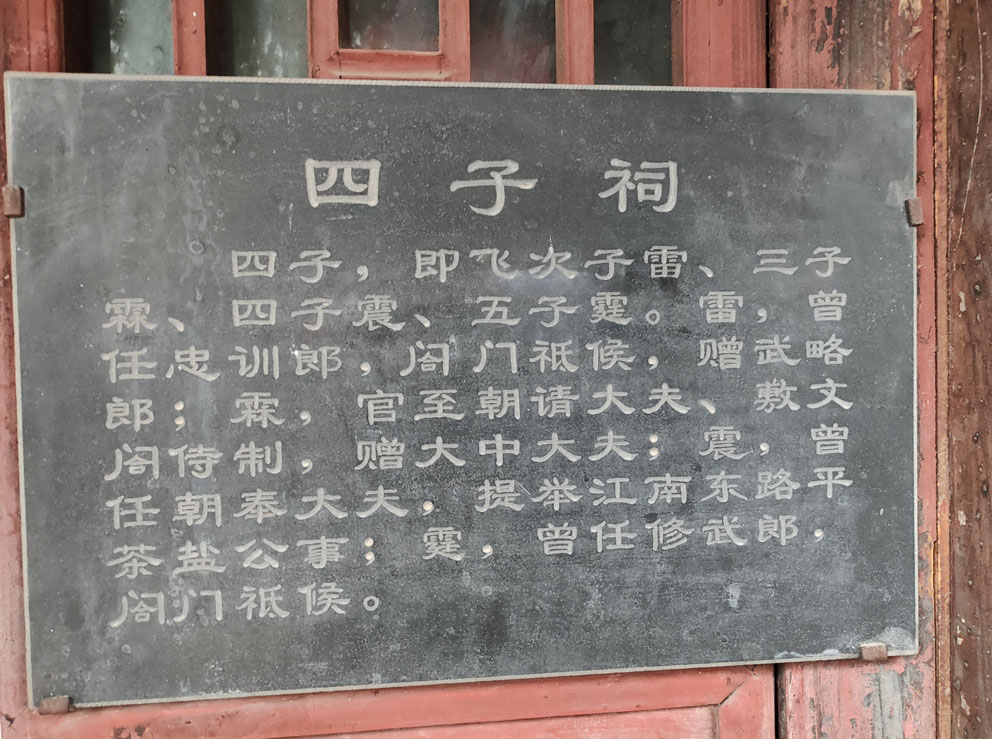 四子祠
四子，即飞次子雷、三子
霖、四子震、五子霆。雷，曾
任忠训郎，阁门祗候，赠武略
郎；霖，官至朝请大夫、敷文
阁侍制，赠大中大夫；震，曾
任朝奉大夫，提举江南东路平
茶盐公事；霆，曾任修武郎，
阁门祗候。